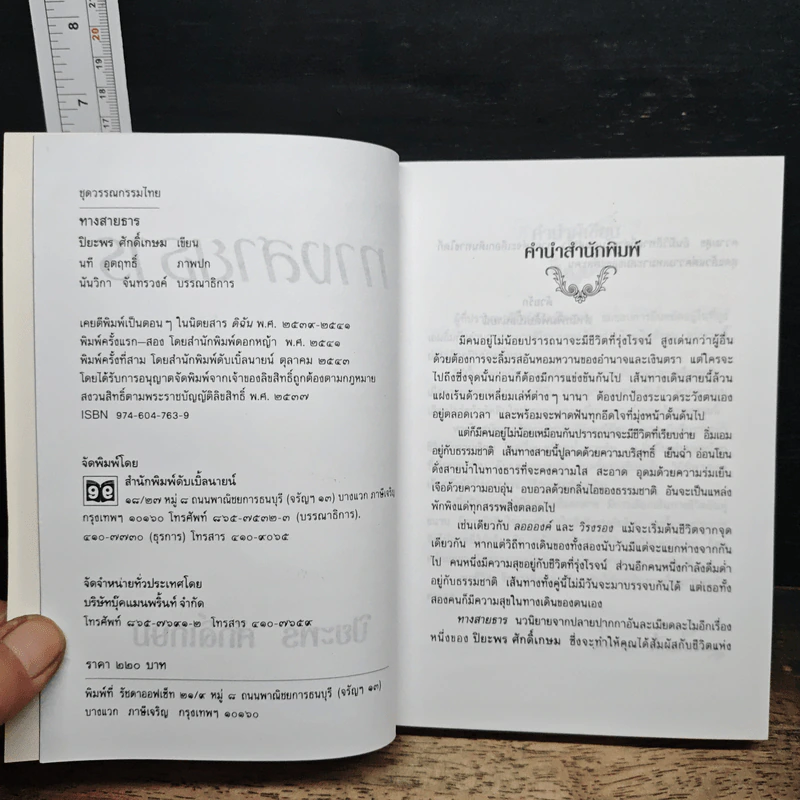 ชุดวรรณกรรมไทย
ทางสายธาร
ปิยะพร ศักดิ์เกษม เขียน
นที อุตฤทธิ์ ภาพปก
นันวิกา จันทรวงค์ บรรณาธิการ
เคยตีพิมพ์เป็นตอนๆ ในนิตยสาร ดิฉัน พ.ศ. ๒๕๓๙-๒๕๔๑
พิมพ์ครั้งแรก-สอง โดยสำนักพิมพ์ดอกหญ้า พ.ศ. ๒๕๔๑
พิมพ์ครั้งที่สาม โดยสำนักพิมพ์ดับเบิ้ลนายน์ ตุลาคม ๒๕๔๓
โดยได้รับการอนุญาตจัดพิมพ์จากเจ้าของลิขสิทธิ์ถูกต้องตามกฎหมาย
สงวนลิขสิทธิ์ตามพระราชบัญญัติลิขสิทธิ์ พ.ศ. ๒๕๓๗
ISBN 974-604-763-9
จัดพิมพ์โดย
๙๙ สำนักพิมพ์ดับเบิ้ลนายน์
๑๘/๒๗ หมู่ ๘ ถนนพาณิชยการธนบุรี (จรัญฯ ๑๓) บางแวก ภาษีเจริญ
กรุงเทพฯ ๑๐๑๖๐ โทรศัพท์ ๘๖๕-๗๕๓๒-๓ (บรรณาธิการ).
๔๑๐-๗๗๓๐ (ธุรการ) โทรสาร ๔๑๐-๙๐๖๕
จัดจำหน่ายทั่วประเทศโดย
บริษัทบุ๊คแมนพริ้นท์ จำกัด
โทรศัพท์ ๘๖๕-๗๖๙๑-๒ โทรสาร ๔๑๐-๗๖๕๙
ราคา ๒๒๐ บาท
พิมพ์ที่ รัชดาออฟเซ็ท ๒๑/๙ หมู่ ๘ ถนนพาณิชยการธนบุรี (จรัญฯ ๑๓)
บางแวก ภาษีเจริญ กรุงเทพฯ ๑๐๑๖๐
คำนำสำนักพิมพ์
มีคนอยู่ไม่น้อยปรารถนาจะมีชีวิตที่รุ่งโรจน์ สูงเด่นกว่าผู้อื่น
ด้วยต้องการจะลิ้มรสอันหอมหวานของอำนาจและเงินตรา แต่ใครจะ
ไปถึงซึ่งจุดนั้นก่อนก็ต้องมีการแข่งขันกันไป เส้นทางเดินสายนี้ล้วน
แฝงเร้นด้วยเหลี่ยมเล่ห์ต่างๆ นานา ต้องปกป้องระแวดระวังตนเอง
อยู่ตลอดเวลา และพร้อมจะฟาดฟันทุกอีดใจที่มุ่งหน้าดั้นด้นไป
แต่ก็มีคนอยู่ไม่น้อยเหมือนกันปรารถนาจะมีชีวิตที่เรียบง่าย อิ่มเอม
อยู่กับธรรมชาติ เส้นทางสายนี้ปูลาดด้วยความบริสุทธิ์ เย็นฉ่ำ อ่อนโยน
ดั่งสายน้ำในทางธารที่จะคงความใส สะอาด อุดมด้วยความร่มเย็น
เจือด้วยความอบอุ่น อบอวลด้วยกลิ่นไอของธรรมชาติ อันจะเป็นแหล่ง
พักพิงแด่ทุกสรรพสิ่งตลอดไป
เช่นเดียวกับ ลอออองค์ และ วิรงรอง แม้จะเริ่มต้นชีวิตจากจุด
เดียวกัน หากแต่วิถีทางเดินของทั้งสองนับวันมีแต่จะแยกห่างจากกัน
ไป คนหนึ่งมีความสุขอยู่กับชีวิตที่รุ่งโรจน์ ส่วนอีกคนหนึ่งกำลังดื่มด่ำ
อยู่กับธรรมชาติ เส้นทางทั้งคู่นี้ไม่มีวันจะมาบรรจบกันได้ แต่เธอทั้ง
สองคนก็มีความสุขในทางเดินของตนเอง
ทางสายธาร นวนิยายจากปลายปากกาอันละเมียดละไมอีกเรื่อง
หนึ่งของ ปิยะพร ศักดิ์เกษม ซึ่งจะทำให้คุณได้สัมผัสกับชีวิตแห่ง